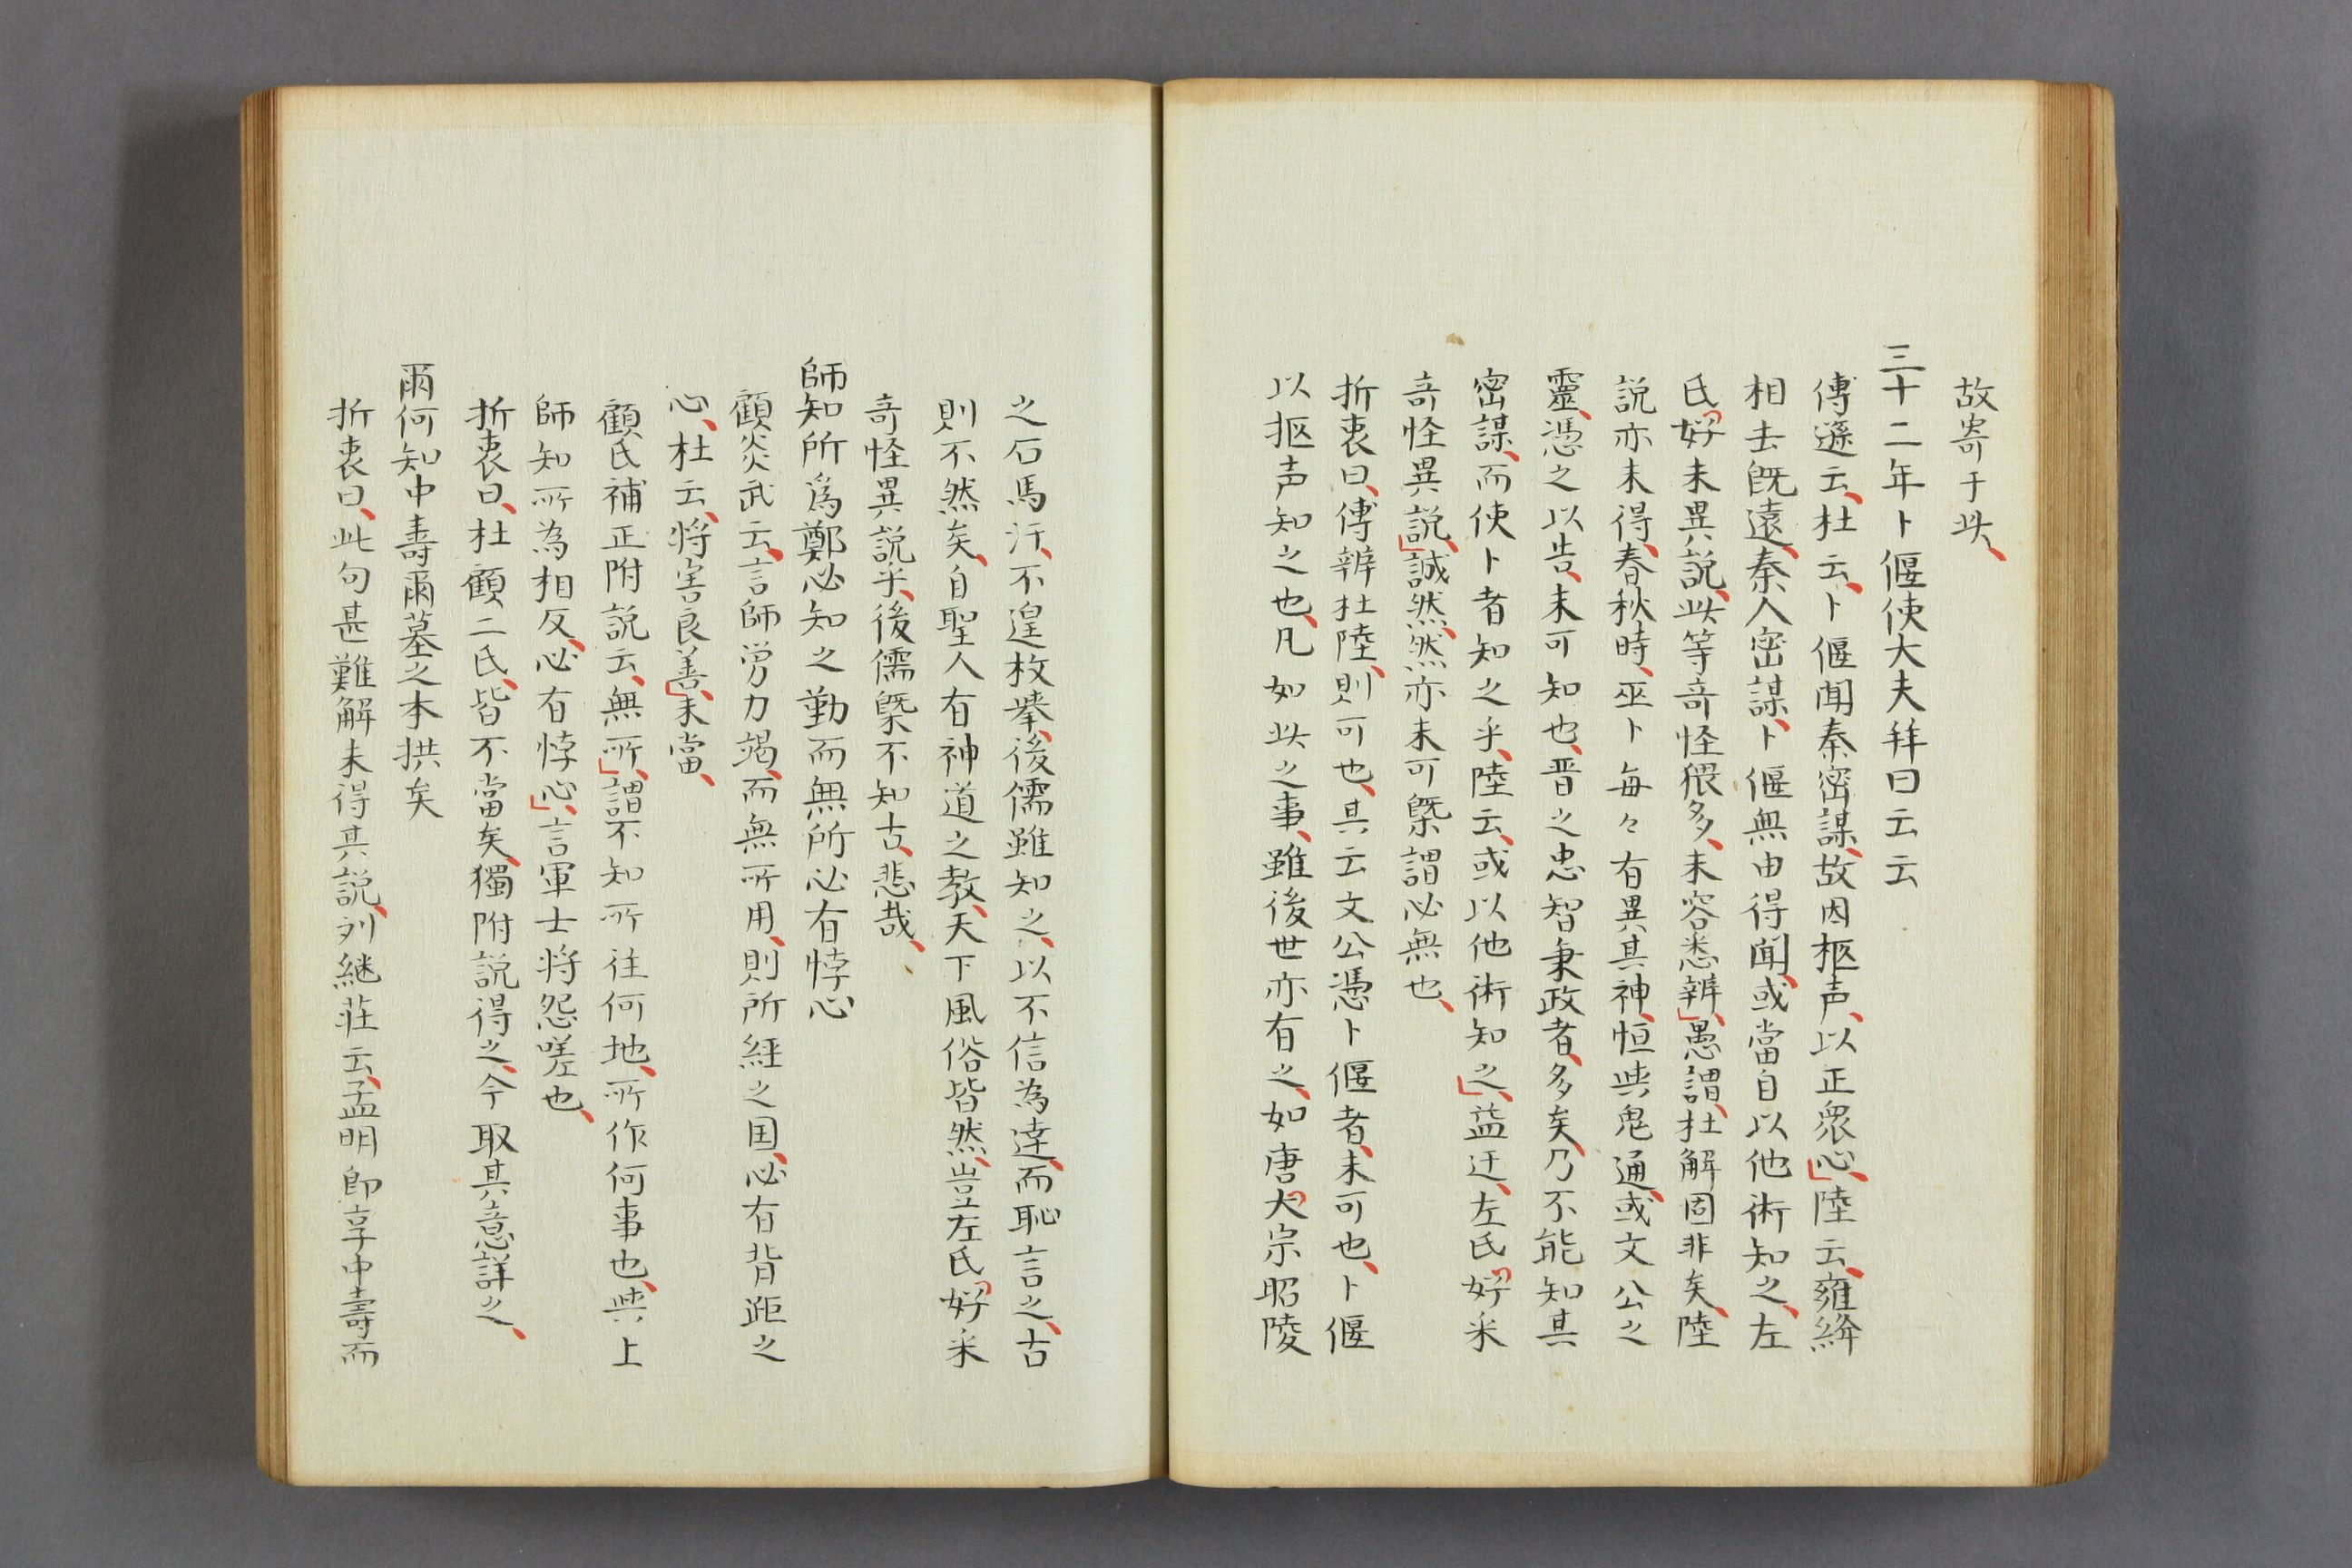 故寄于此、
三十二年卜偃使大夫拜曰云云
傳遜云、杜云、卜偃聞秦密謀、故因柩声、以正衆心」、陸云、雍絳
相去既遠、秦人密謀、卜偃無由得聞、或當自以他術知之、左
氏好釆異説、此等竒怪猥多、未容悉辨」、愚謂、杜解固非矣、陸
説亦未得、春秋時、巫卜毎々有異其神、恒与鬼通、或文公之
靈、憑之以告、未可知也、晋之忠智秉政者、多矣、乃不能知其
密謀、而使卜者知之乎、陸云、或以他術知之」、益迂、左氏好采
竒怪異説」、誠然、然亦未可槩謂必無也、
折衷曰、傅辨杜陸、則可也、其云文公憑卜偃者、未可也、卜偃
以柩声知之也、凡如此之事、雖後世亦有之、如唐大宗昭陵
之石馬汗、不遑枚擧、後儒雖知之、以不信為達、而恥言之、古
則不然矣、自聖人有神道之教、天下風俗皆然、豈左氏好采
奇怪異説乎、後儒槩不知古、悲哉、
師知所爲鄭必知之勤而無所必有悖心
顧炎武云、言師労力竭、而無所用、則所經之国、必有背距之
心、杜云、将害良善」、未當、
顧氏補正附説云、無所」、謂不知所往何地、所作何事也、与上
師知所為相反、必有悖心」、言軍士将怨嗟也、
折衷曰、杜顧二氏、皆不當矣、獨附説得之、今取其意詳之、
爾何知中壽爾墓之木拱矣
折衷曰、此句甚難解未得其説、列継荘云、孟明即享中壽而